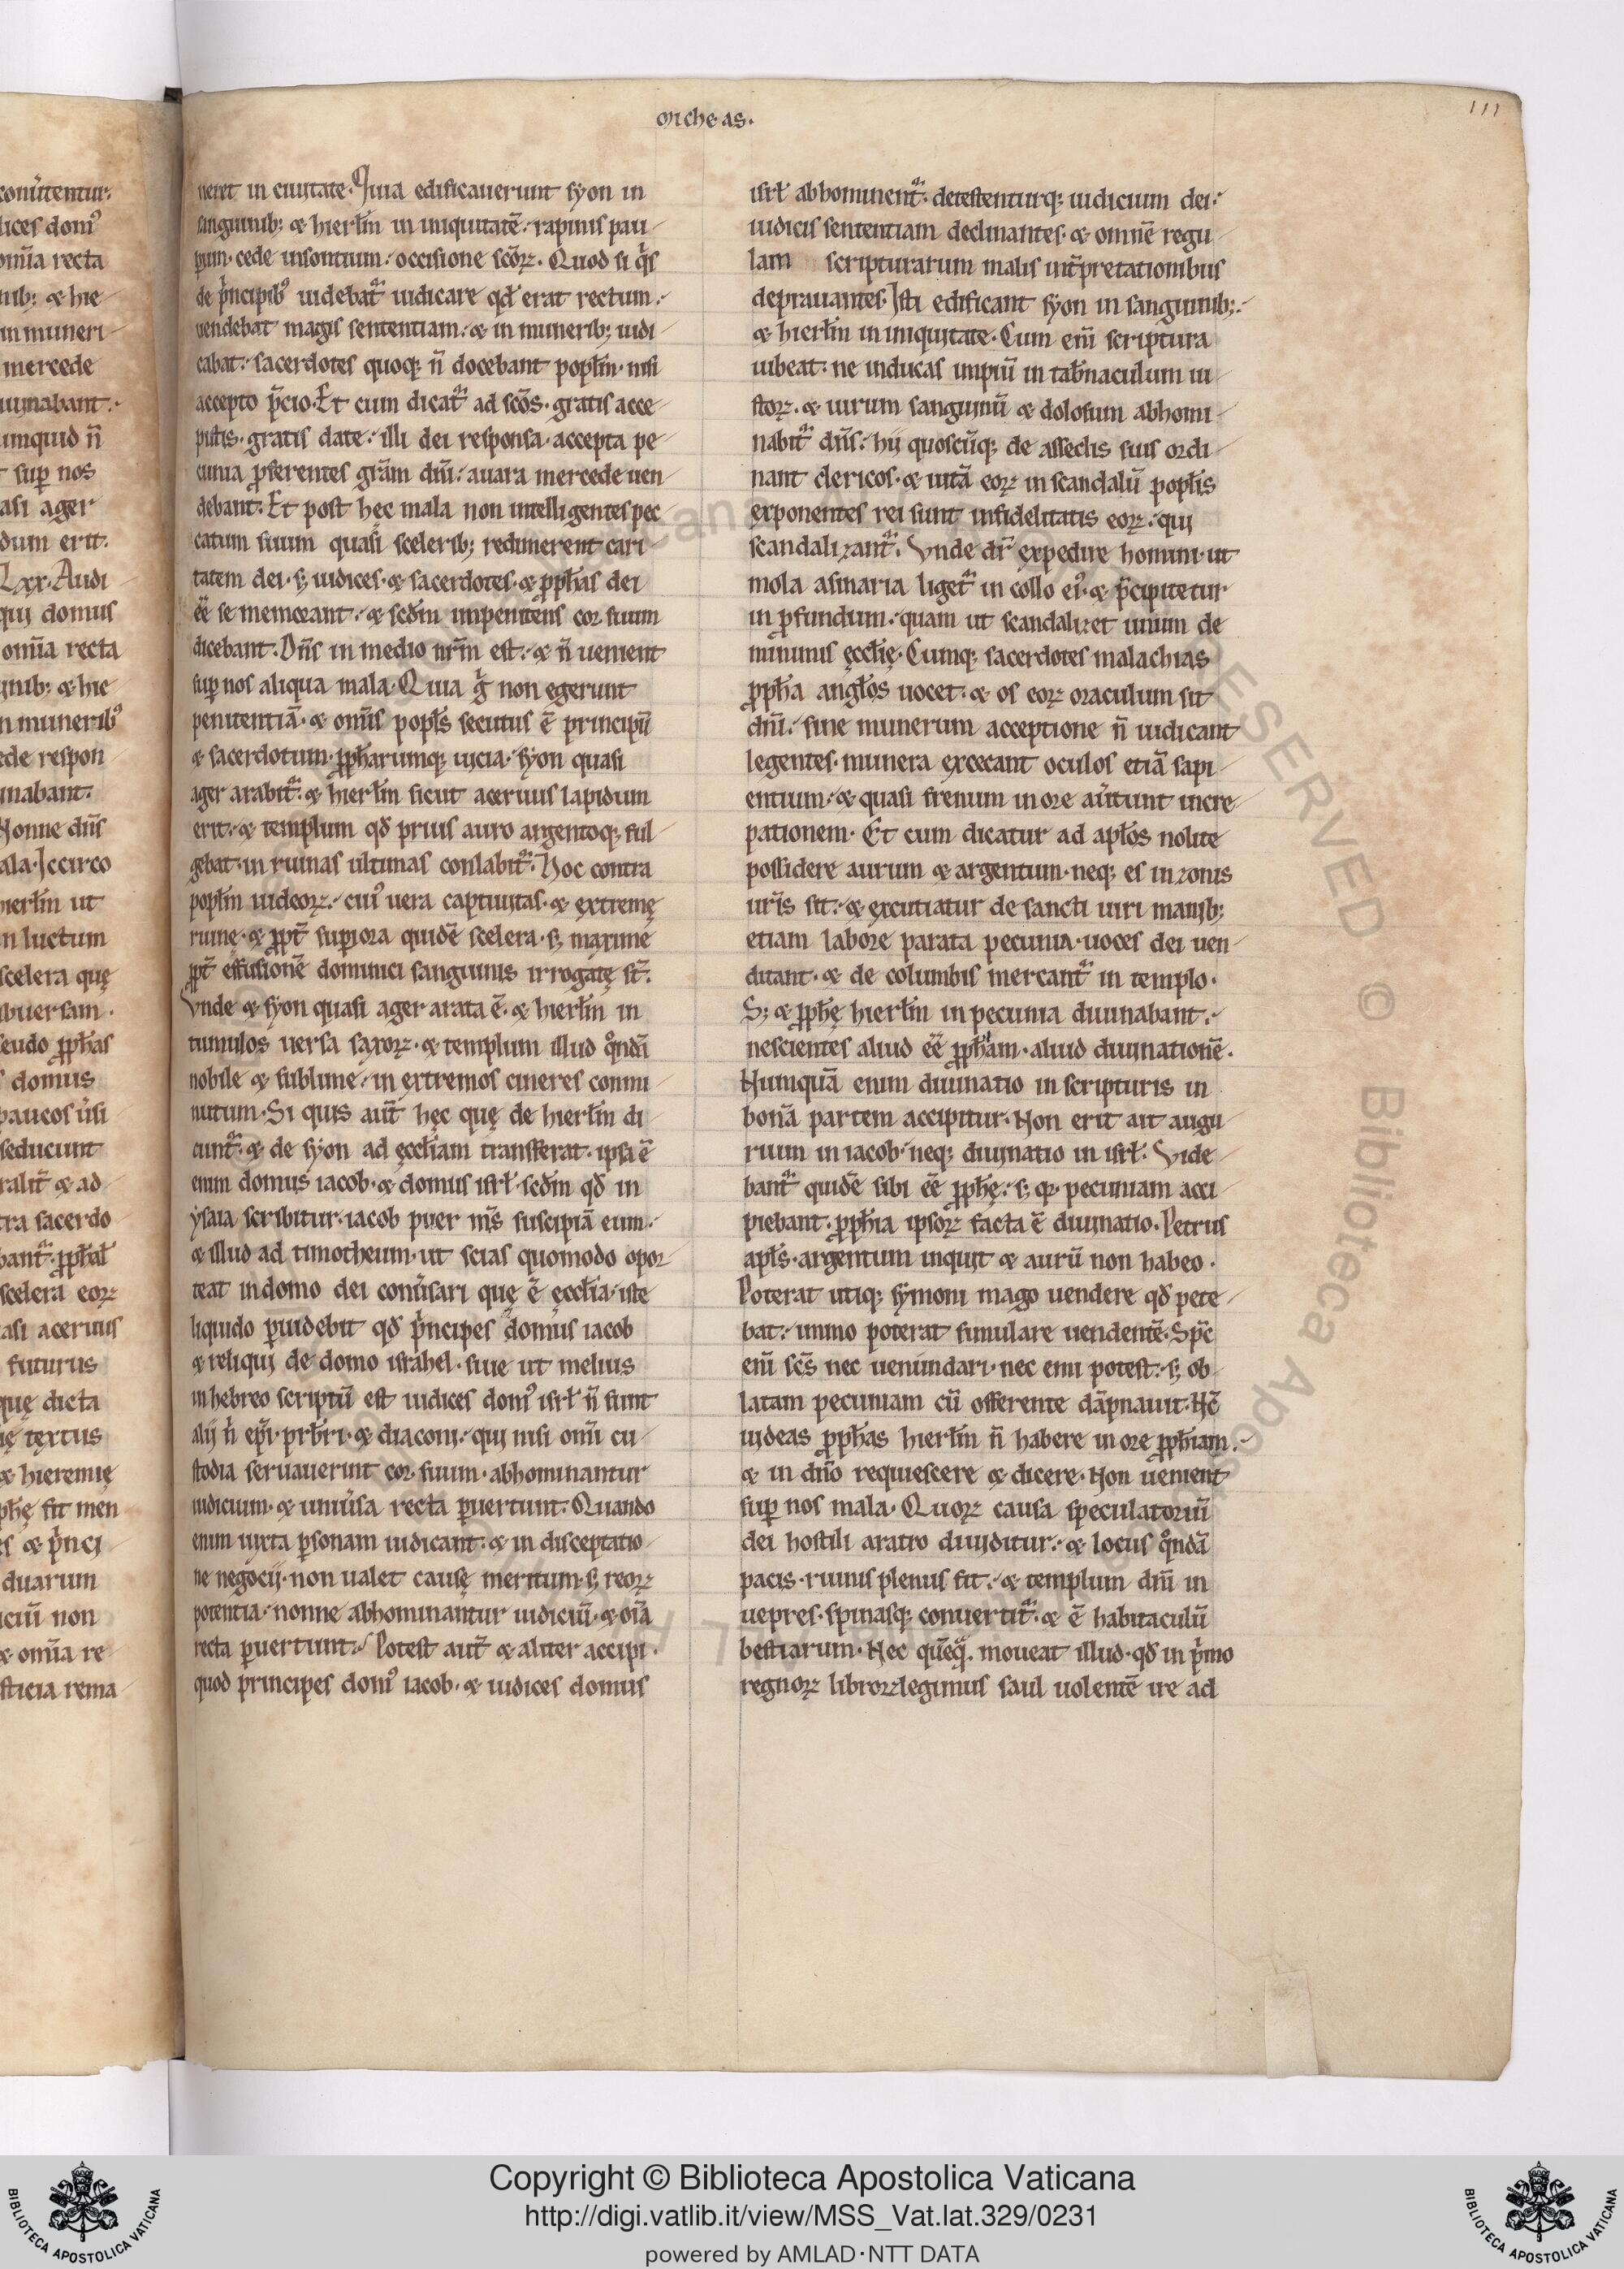 micheas.
111
ueret in ciuitate. Quia edificauerunt syon in
sanguinib; & hierłm in iniquitatē. rapinis pau
pum. cede insontium. occisione scōꝝ. Quod si qͥs
de pͥncipibꝰ uidebatᷣ iudicare qđ erat rectum.
uendebat magis sententiam. & in munerib; iudi
cabat. sacerdotes quoq; ñ docebant popłm. nisi
accepto p̄cio. Et cum dicatᷣ ad scōs. gratis acce
pistis. gratis date. illi dei responsa. accepta pe
cunia ꝓferentes grām dñi. auara mercede uen
debant. Et post hęc mala non intelligentes pec
catum suum quasi scelerib; redimerent cari
tatem dei. s; iudices. & sacerdotes. & ꝓphas dei
eē se
& scđm impenitens cor suum
dicebant. Dñs in medio nr̄m est. & ñ uenient
suꝑ nos aliqua mala. Quia gͥ non egerunt
penitentiā. & omīs popłs secutus ē principū
& sacerdotum. ꝓpharumq; uicia. syon quasi
ager arabitᷣ. & hierłm sicut aceruus lapidum
erit. & templum qđ prius auro argentoq; ful
gebat. in ruinas ultimas conlabitᷣ. Hoc contra
popłm iudeoꝝ. cuiꝰ uera captiuitas. & extremę
ruine. & ꝓpt̄ supiora quidē scelera. s; maxime
ꝓpt̄ effusionē dominici sanguinis irrogatę st̄.
Vnde & syon quasi ager arata ē. & hierłm in
tumulos uersa saxoꝝ. & templum illud qͦndā
nobile & sublime. in extremos cineres commi
nutum. Si quis aut̄ hęc quę de hierłm di
cuntᷣ. & de syon ad ęccłiam transferat. ipsa ē
enim domus iacob. & domus isrł. scđm qđ in
ysaia scribitur. iacob puer m̄s suscipiā eum.
& illud ad timotheum. ut scias quomodo opor
teat in domo dei conu̓sari quę ē ęccłia. iste
liquido ꝑuidebit qđ pͥncipes domus iacob
& reliqui de domo israhel. siue ut melius
in hebreo scriptū est iudices domꝰ isrł ñ sunt
alij ñ ep̄i. prb̄ri. & diaconi. qui nisi omī cu
stodia seruauerint cor suum. abhominantur
iudicium. & uniu̓sa recta ꝑuertunt. Quando
enim iuxta ꝑsonam iudicant. & in disceptatio
ne negocij. non ualet causę meritum. s; reoꝝ
potentia. nonne abhominantur iudiciū. & oīa
recta ꝑuertunt. Potest aut̄ & aliter accipi.
quod principes domꝰ iacob. & iudices domus
isrł abhominentᷣ. detestenturq; iudicium dei.
iudicis sententiam declinantes. & omnē regu
lam scripturarum malis int̄pretationibus
deprauantes. Isti edificant syon in sanguinib;.
& hierłm in iniquitate. Cum eni̅ scriptura
iubeat. ne inducas impiū in tab̄naculum iu
stoꝝ. & uirum sanguinū & dolosum abhomi
nabitᷣ dñs. hij quoscūq; de asseclis suis ordi
nant clericos. & uitā eoꝝ in scandalū popłis
exponentes rei sunt infidelitatis eoꝝ. qui
scandalizantᷣ. Vnde dr̄ expedire homini. ut
mola asinaria ligetᷣ in collo eiꝰ. & p̄cipitetur
in ꝓfundum. quam ut scandalizet unum de
minimis ęccłię. Cumq; sacerdotes malachias
ꝓpha angłos uocet. & os eoꝝ oraculum sit
dñi. sine munerum acceptione ñ iudicant
legentes. munera excecant oculos etiā sapi
entium. & quasi frenum in ore au̓tunt incre
pationem. Et cum dicatur ad apłos nolite
possidere aurum & argentum. neq; es in zonis
ur̄is sit. & excutiatur de sancti uiri manib;
etiam labore parata pecunia. uoces dei uen
ditant. & de columbis mercantᷣ in templo.
S; & ꝓphę hierłm in pecunia diuinabant.
nescientes aliud eē ꝓpham. aliud diuinationē.
Numquā enim diuinatio in scripturis in
bonā partem accipitur. Non erit ait augu
rium in iacob. neq; diuinatio in isrł. Vide
bantᷣ quidē sibi eē ꝓphę. s; qꝛ pecuniam acci
piebant. ꝓphia ipsoꝝ facta ē diuinatio. Petrus
apłs. argentum inquit & aurū non habeo.
Poterat utiq; symoni mago uendere qđ pete
bat. immo poterat simulare uendentē. Sp̄c
eni̅ sc̄s nec uenundari. nec emi potest. s; ob
latam pecuniam cū offerente dāpnauit. Nc̄
uideas ꝓphas hierłm ñ habere in ore ꝓphiam.
& in dño requiescere & dicere. Non uenient
suꝑ nos mala. Quoꝝ causa speculatoriū
dei hostili aratro diuiditur. & locus qͦndā
pacis. ruinis plenus fit. & templum dñi in
uepres. spinasq; conuertitᷣ. & ē habitaculū
bestiarum. Nec quēqͣ. moueat illud. qđ in pͥmo
regnoꝝ libroꝝ legimus saul uolentē ire ad
Copyright © Biblioteca Apostolica Vaticana
http://digi.vatlib.it/view/MSS_Vat.lat.329/0231
powered by AMLAD·NTT DATA
BIBLIOTECA APOSTOLICA VATICANA
BIBLIOTECA APOSTOLICA VATICANA